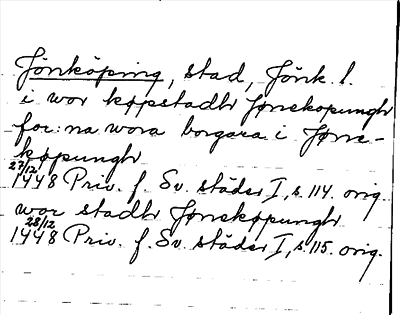 Jönköping, stad, Jönk. l.
i wor køpstadh Jønekøpungh
for:na wora borgara i Jøne-
køpungh
27/12
1448 Priv. f. Sv. städer I, s. 114. orig.
wor stadh Jønekøpungh
28/12
1448 Priv. f. Sv. städer I, s. 115. orig.